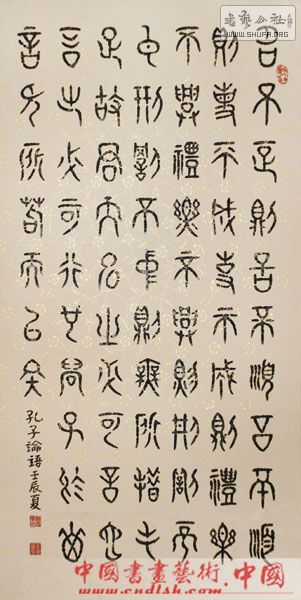 名不正則言不順言不順
則事不成事不成則禮樂
不興禮樂不興則刑罰不
中刑罰不中則無所措手
足故君子名之必可言也
言之必可行也君子於其
言无所苟而已矣
孔子論語壬辰夏
书艺公社
WWW.SHUFA.ORG
中國書畫藝術.中國
www.cndlsh.com